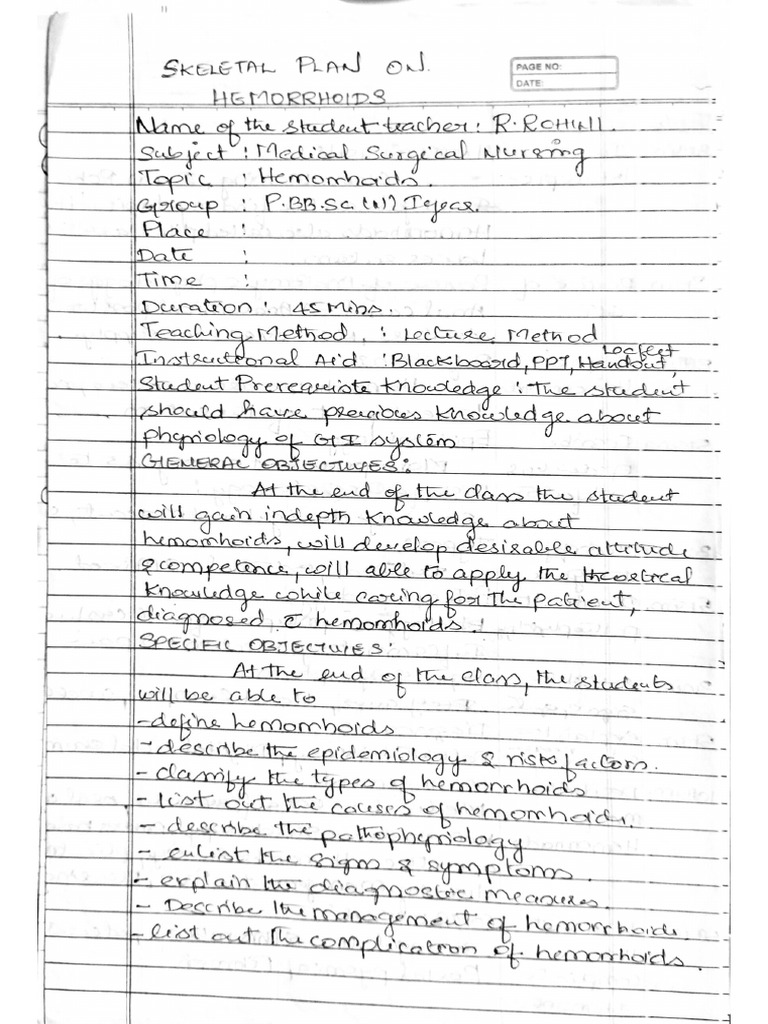 SKELETAL PLAN ON.
HEMORRHOIDS
PAGE NO:
DATE:
Name of the student teacher: R. ROHINI.
Subject : Medical Surgical Nursing
Topic : Hemorrhoids.
Group : P.BB.Sc (N) I year.
Place :
Date :
Time :
Duration : 45 Mins.
Teaching Method : Lecture Method
Instructional Aid : Blackboard, PPT, Handout,
Student Prerequiste Knowledge : The student
should have previous knowledge about
physiology of GI system
GENERAL OBJECTIVES:
At the end of the class the student
will gain indepth knowledge about
hemorrhoids, will develop desirable attitude
& competence, will able to apply the theoretical
knowledge while caring for the patient,
diagnosed c̄ hemorrhoids.
SPECIFIC OBJECTIVES:
At the end of the class, the students
will be able to
- define hemorrhoids
- describe the epidemiology & risk factors.
- classify the types of hemorrhoids
- list out the causes of hemorrhoids.
- describe the pathophysiology
- enlist the signs & symptoms.
- explain the diagnostic measures.
- Describe the management of hemorrhoids.
- list out the complication of hemorrhoids.